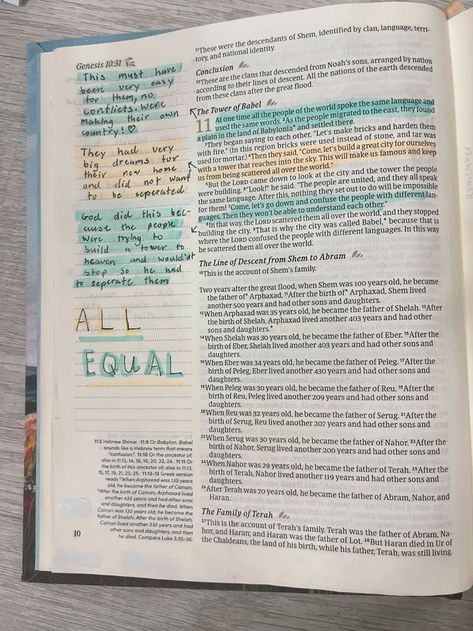 Genesis 10:31
This must have
been very easy
for them, no
conflicts. Were
making their own
country! ♡
They had very
big dreams for
their new home
and did not want
to be seperated
God did this bec-
cause the people
were trying to
build a tower to
heaven and would'nt
stop so he had
to seperate them
ALL
EQUAL
11:2 Hebrew Shinar. 11:9 Or Babylon. Babel
sounds like a Hebrew term that means
"confusion." 11:10 Or the ancestor of;
also in 11:12, 14, 16, 18, 20, 22, 24. 11:11 Or
the birth of this ancestor of; also in 11:13,
15, 17, 19, 21, 23, 25. 11:12-13 Greek version
reads 12When Arphaxad was 135 years
old, he became the father of Cainan.
13After the birth of Cainan, Arphaxad lived
another 430 years and had other sons
and daughters, and then he died. When
Cainan was 130 years old, he became the
father of Shelah. After the birth of Shelah,
Cainan lived another 330 years and had
other sons and daughters, and then
he died. Compare Luke 3:35-36.
10
31These were the descendants of Shem, identified by clan, language, terri-
tory, and national identity.
Conclusion
32These are the clans that descended from Noah's sons, arranged by nation
according to their lines of descent. All the nations of the earth descended
from these clans after the great flood.
The Tower of Babel
11 At one time all the people of the world spoke the same language and
used the same words. 2As the people migrated to the east, they found
a plain in the land of Babylonia* and settled there.
3They began saying to each other, "Let's make bricks and harden them
with fire." (In this region bricks were used instead of stone, and tar was
used for mortar.) 4Then they said, "Come, let's build a great city for ourselves
with a tower that reaches into the sky. This will make us famous and keep
us from being scattered all over the world."
5But the LORD came down to look at the city and the tower the people
were building. 6"Look!" he said. "The people are united, and they all speak
the same language. After this, nothing they set out to do will be impossible
for them! 7Come, let's go down and confuse the people with different lan-
guages. Then they won't be able to understand each other."
8In that way, the LORD scattered them all over the world, and they stopped
building the city. 9That is why the city was called Babel,* because that is
where the LORD confused the people with different languages. In this way
he scattered them all over the world.
The Line of Descent from Shem to Abram
10This is the account of Shem's family.
Two years after the great flood, when Shem was 100 years old, he became
the father of* Arphaxad. 11After the birth of* Arphaxad, Shem lived
another 500 years and had other sons and daughters.
12When Arphaxad was 35 years old, he became the father of Shelah. 13After
the birth of Shelah, Arphaxad lived another 403 years and had other
sons and daughters.*
14When Shelah was 30 years old, he became the father of Eber. 15After the
birth of Eber, Shelah lived another 403 years and had other sons and
daughters.
16When Eber was 34 years old, he became the father of Peleg. 17After the
birth of Peleg, Eber lived another 430 years and had other sons and
daughters.
18When Peleg was 30 years old, he became the father of Reu. 19After the
birth of Reu, Peleg lived another 209 years and had other sons and
daughters.
20When Reu was 32 years old, he became the father of Serug. 21After the
birth of Serug, Reu lived another 207 years and had other sons and
daughters.
22When Serug was 30 years old, he became the father of Nahor. 23After the
birth of Nahor, Serug lived another 200 years and had other sons and
daughters.
24When Nahor was 29 years old, he became the father of Terah. 25After the
birth of Terah, Nahor lived another 119 years and had other sons and
daughters.
26After Terah was 70 years old, he became the father of Abram, Nahor, and
Haran.
The Family of Terah
27This is the account of Terah's family. Terah was the father of Abram, Na-
hor, and Haran; and Haran was the father of Lot. 28But Haran died in Ur of
the Chaldeans, the land of his birth, while his father, Terah, was still living.